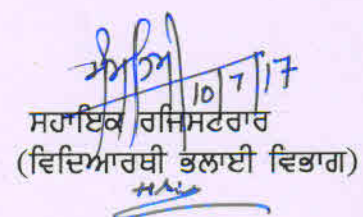 10/7/17
ਸਹਾਇਕ ਰਜਿਸਟਰਾਰ
(ਵਿਦਿਆਰਥੀ ਭਲਾਈ ਵਿਭਾਗ)